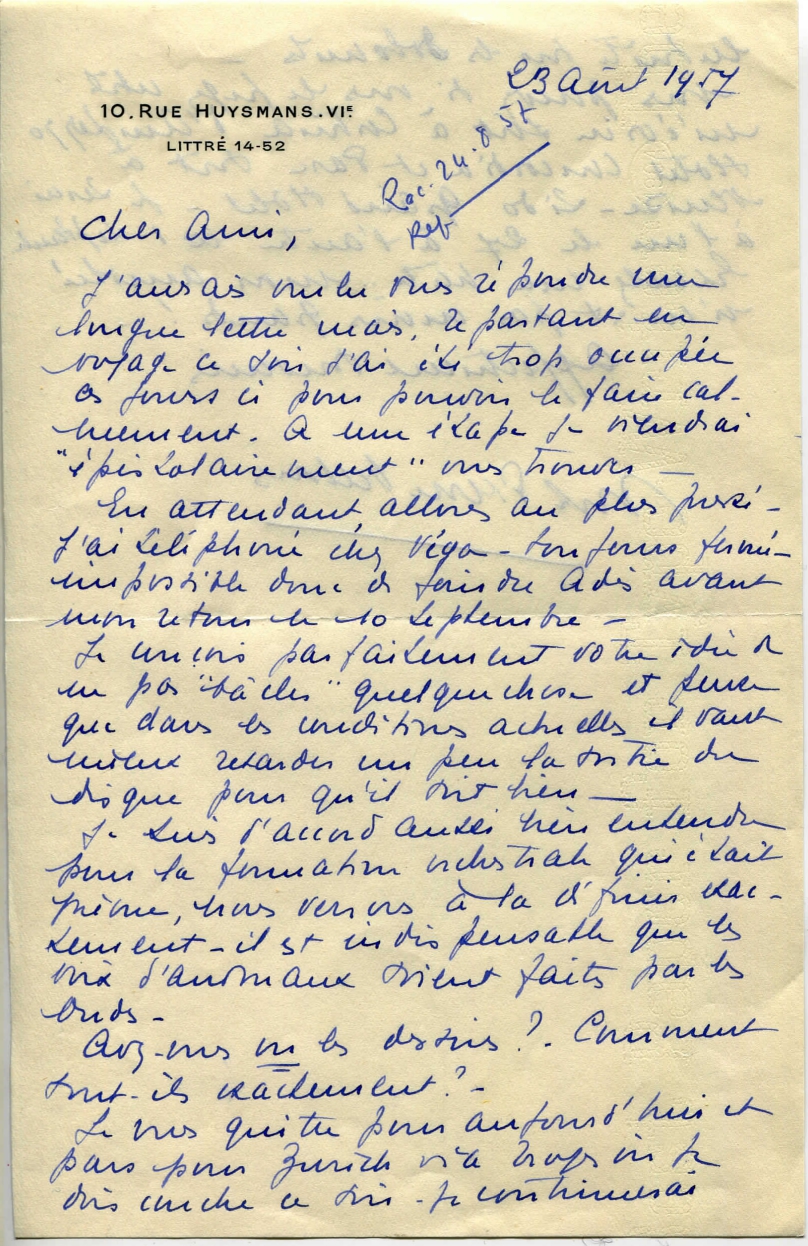 23 Août 1957
10, RUE HUYSMANS. VIE.
LITTRÉ 14-52
Rec. 24.8.57
Rep
Cher Ami,
J'aurais voulu vous répondre une
longue lettre mais, repartant en
voyage ce soir j'ai été trop occupée
ces jours ci pour pouvoir le faire cal-
mement. A une étape je viendrai
"épistolairement" vous trouver —
En attendant allons au plus pressé -
J'ai téléphoné chez Véga - toujours fermé -
impossible donc de joindre Adès avant
mon retour le 10 Septembre -
Je conçois parfaitement votre idée de
ne pas "bâcler" quelquechose et pense
que dans les conditions actuelles il vaut
mieux retarder un peu la sortie du
disque pour qu'il soit bien —
Je suis d'accord aussi bien entendu
pour la formation orchestrale qui était
prévue, nous verrons à la définir exac-
tement - il est indispensable que les
voix d'animaux soient faits par les
Ondes -
Avez-vous vu les dessins ? . Comment
sont-ils exactement ? -
Je vous quitte pour aujourd'hui et
pars pour Zurich via Troyes où je
dois couche ce soir - Je continuerai